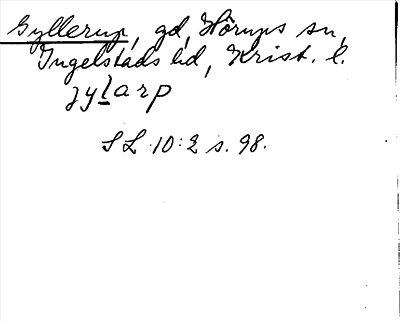 Gyllerup, gd, Hörups sn,
Ingelstads hd, Krist. l.
jylarp
SL 10:2 s. 98.